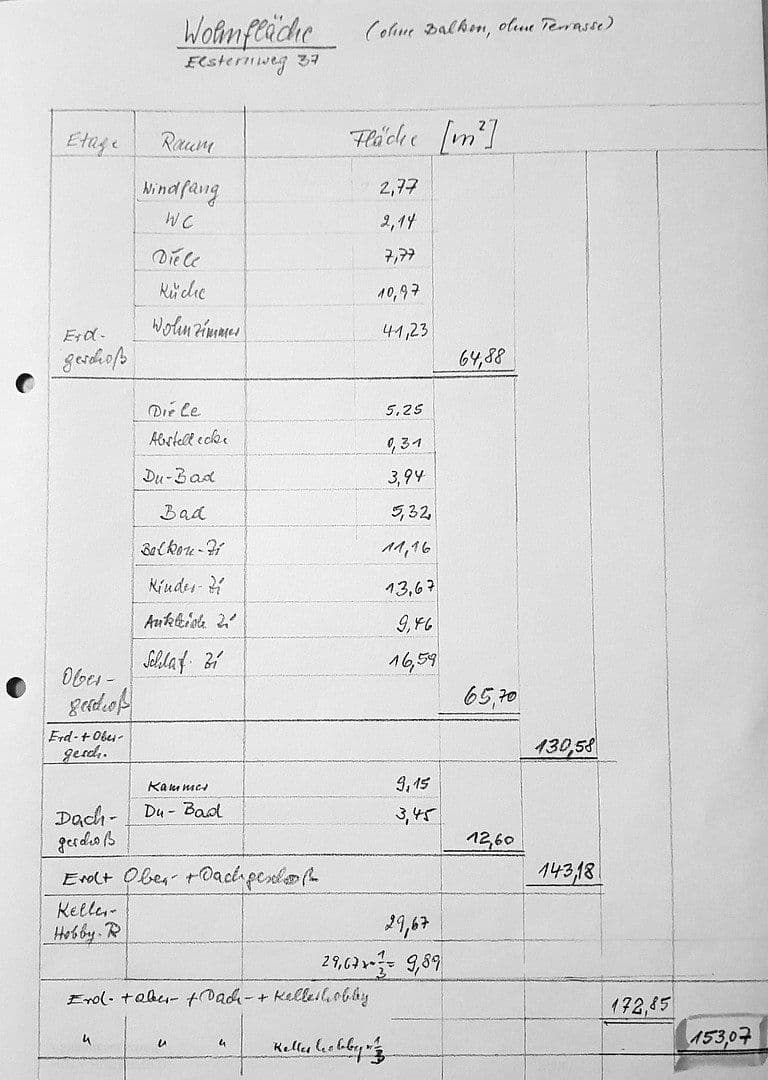 Wohnfläche (ohne Balkon, ohne Terrasse)
Elsternweg 37
Etage Raum Fläche [m²]
Windfang 2,77
WC 2,14
Diele 7,77
Küche 10,97
Wohnzimmer 41,23
Erd-
geschoß 64,88
Diele 5.25
Abstellecke 0,31
Du-Bad 3,94
Bad 5,32
Balkon-Zi 11,16
Kinder-Zi 13,67
Ankleide Zi 9,46
Schlaf. Zi 16,59
Ober-
geschoß 65,70
Erd-+Ober-
gesch. 130,58
Kammer 9,15
Du-Bad 3,45
Dach-
geschoß 12,60
Erd+ Ober- + Dachgeschoß 143,18
Keller-
Hobby-R 29,67
29,67 × 1/3 = 9,89
Erd- + ober- + Dach- + Kellerhobby 172,85
" " " Kellerhobby × 1/3 153,07